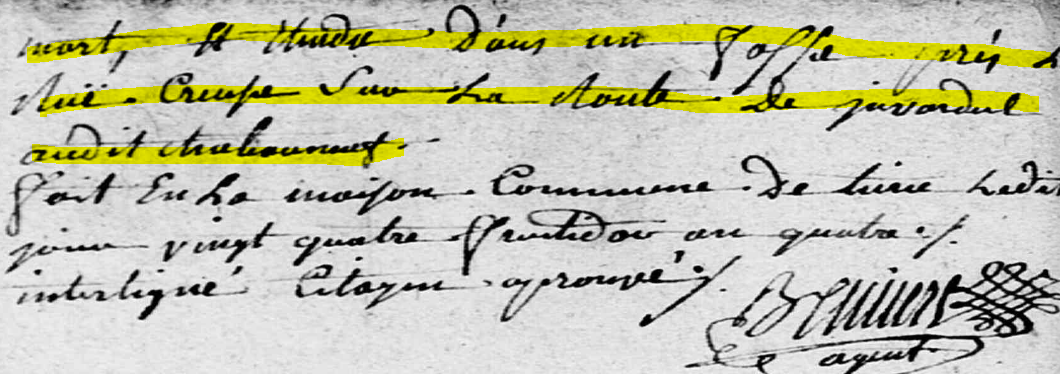 mort, Et Etendu Dans un fosse près L
Rüe Creuse Sur La Route De juvardeil
audit
fait En La maison Commune De Ledit
jour vingt quatre fructidor an quatre ./.
interligné Citoyen aprouvé ./.
agent